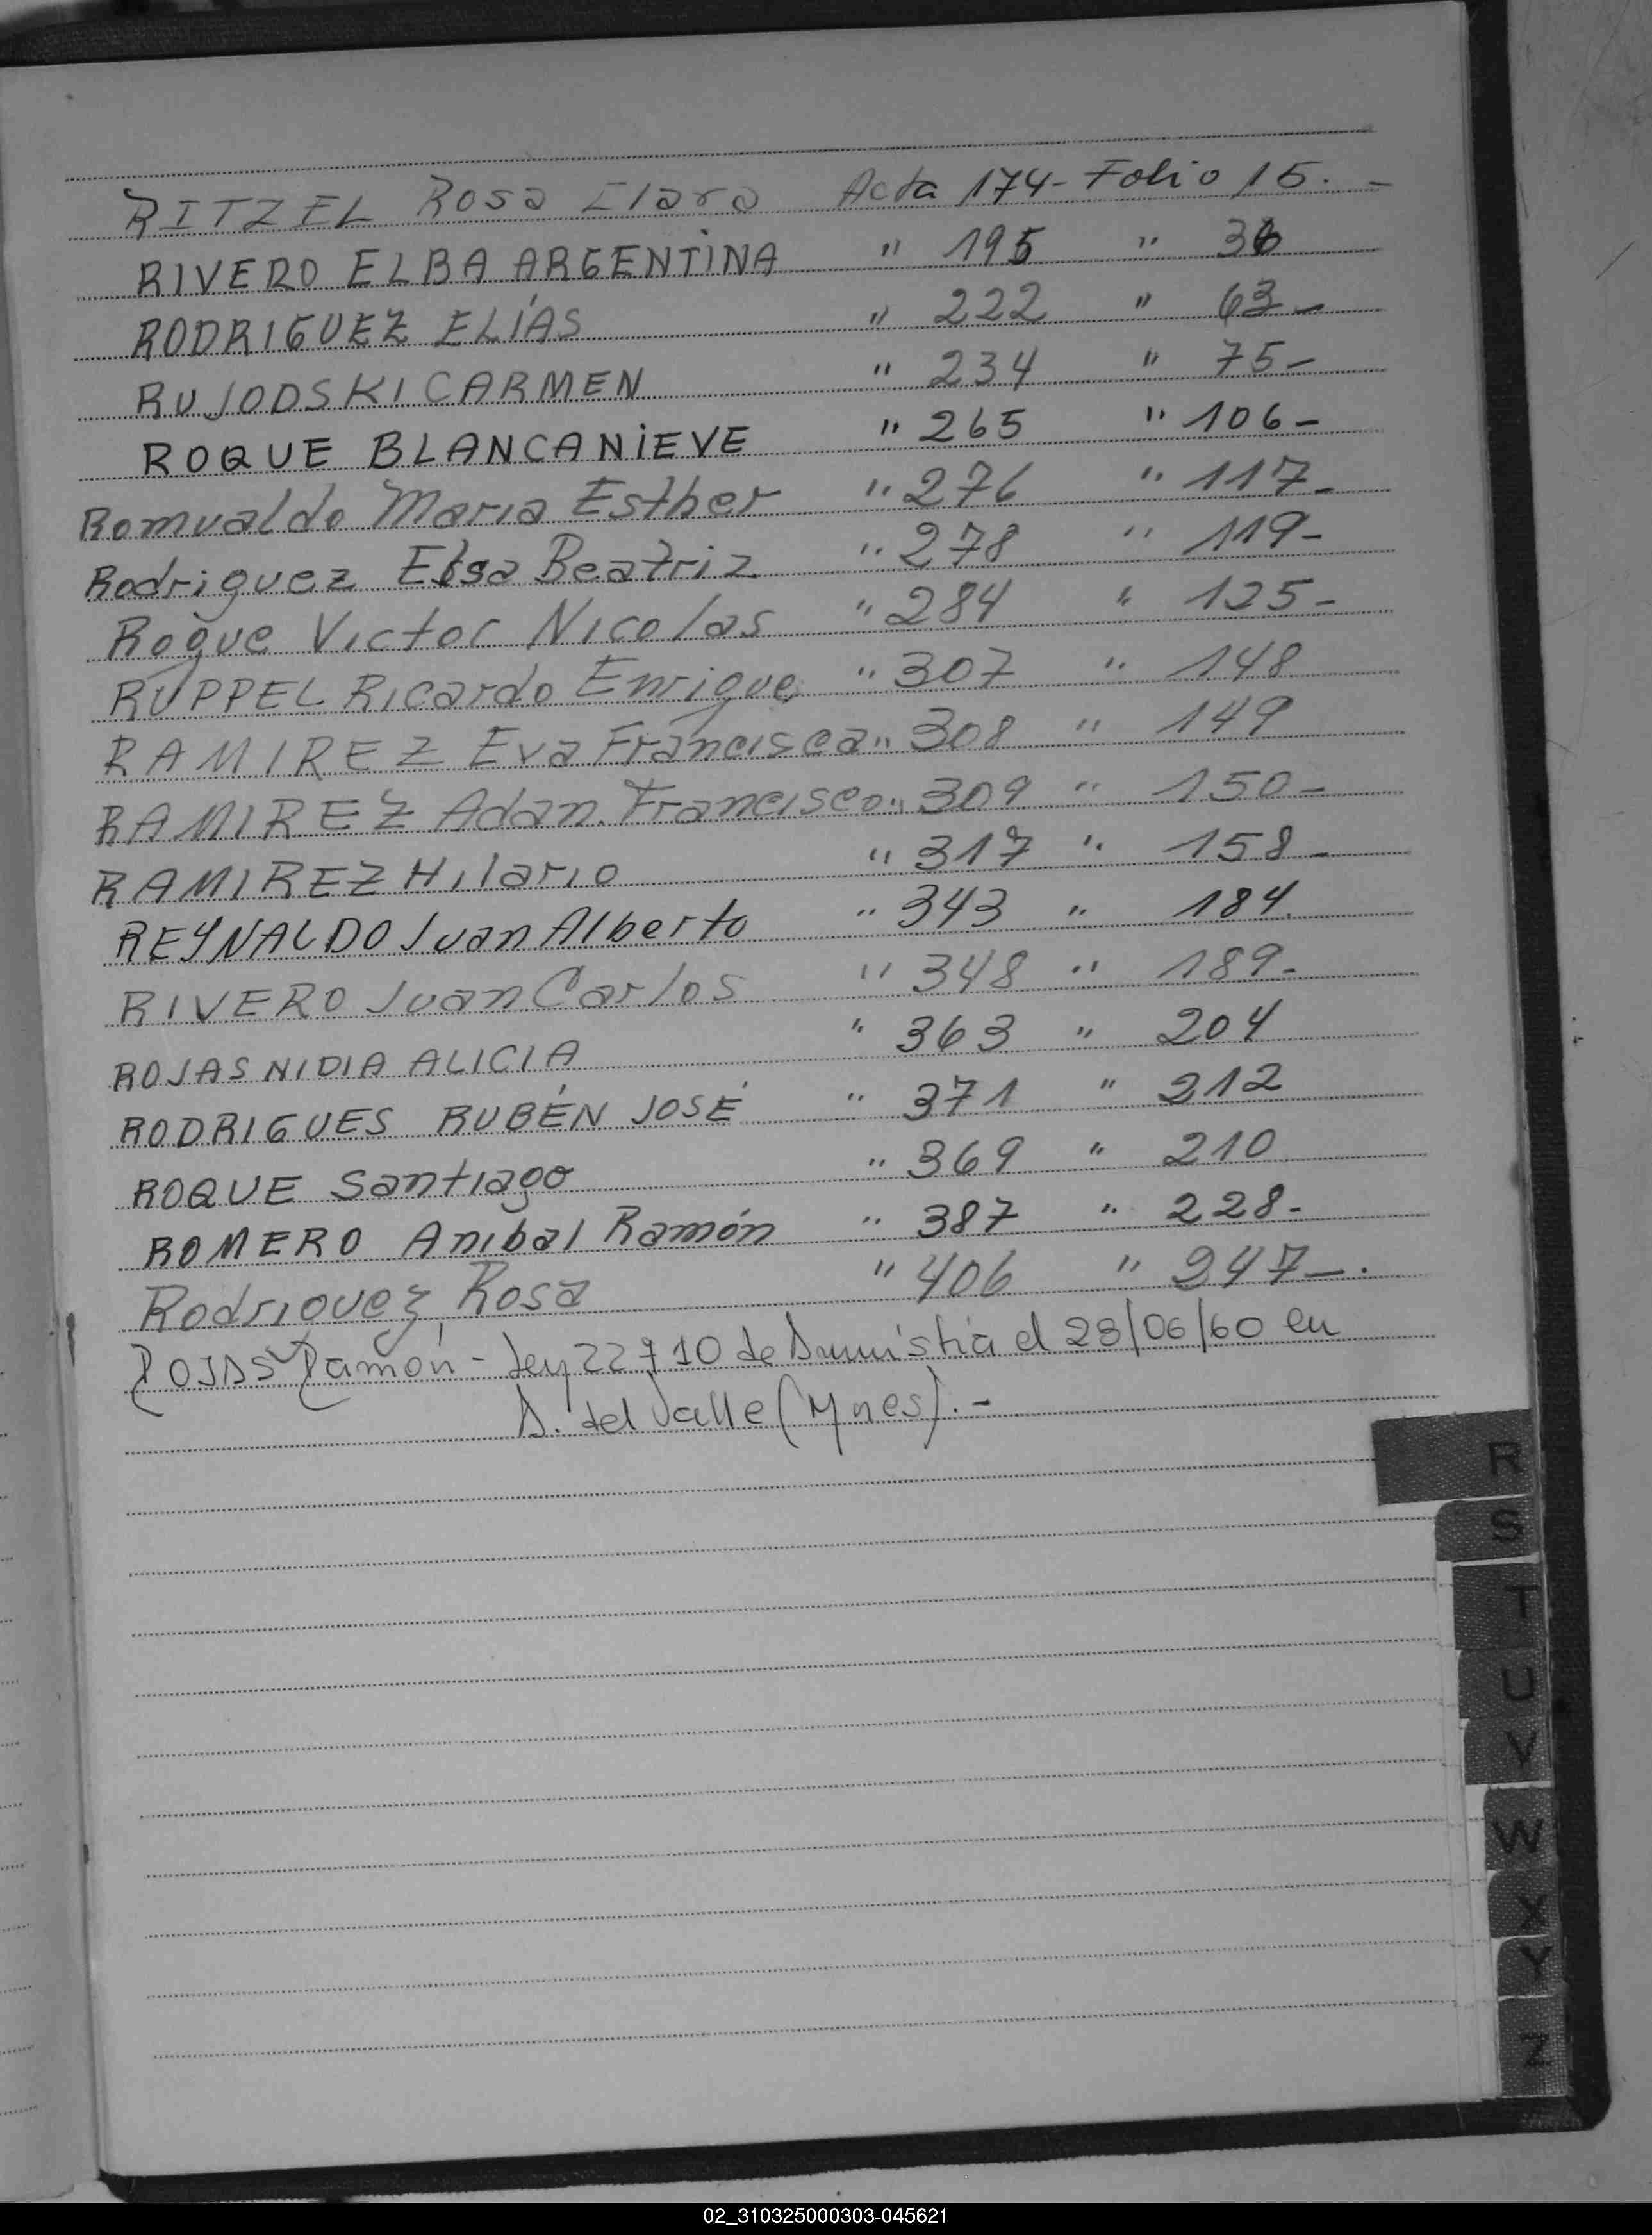 RITZEL Rosa Clara Acta 174 - Folio 15. -
RIVERO ELBA ARGENTINA " 195 " 36
RODRIGUEZ ELÍAS " 222 " 63 -
RUJODSKI CARMEN " 234 " 75 -
ROQUE BLANCANIEVE " 265 " 106 -
Romualdo Maria Esther " 276 " 117 -
Rodriguez Elsa Beatriz " 278 " 119 -
Roque Victor Nicolas " 284 " 125 -
RUPPEL Ricardo Enrique " 307 " 148
RAMIREZ Eva Francisca " 308 " 149
RAMIREZ Adan. Francisco " 309 " 150 -
RAMIREZ Hilario " 317 " 158 -
REYNALDO Juan Alberto " 343 " 184.
RIVERO Juan Carlos " 348 " 189 -
ROJAS NIDIA ALICIA " 363 " 204
RODRIGUES RUBÉN JOSÉ " 371 " 212
ROQUE Santiago " 369 " 210
ROMERO Anibal Ramón " 387 " 228 -
Rodriguez Rosa " 406 " 247 - .
ROJAS Ramón - Ley 22710 de Amnistia el 28/06/60 en
A. del Valle (Mnes). -
R
S
T
U
V
W
X
Y
Z
02_310325000303-045621